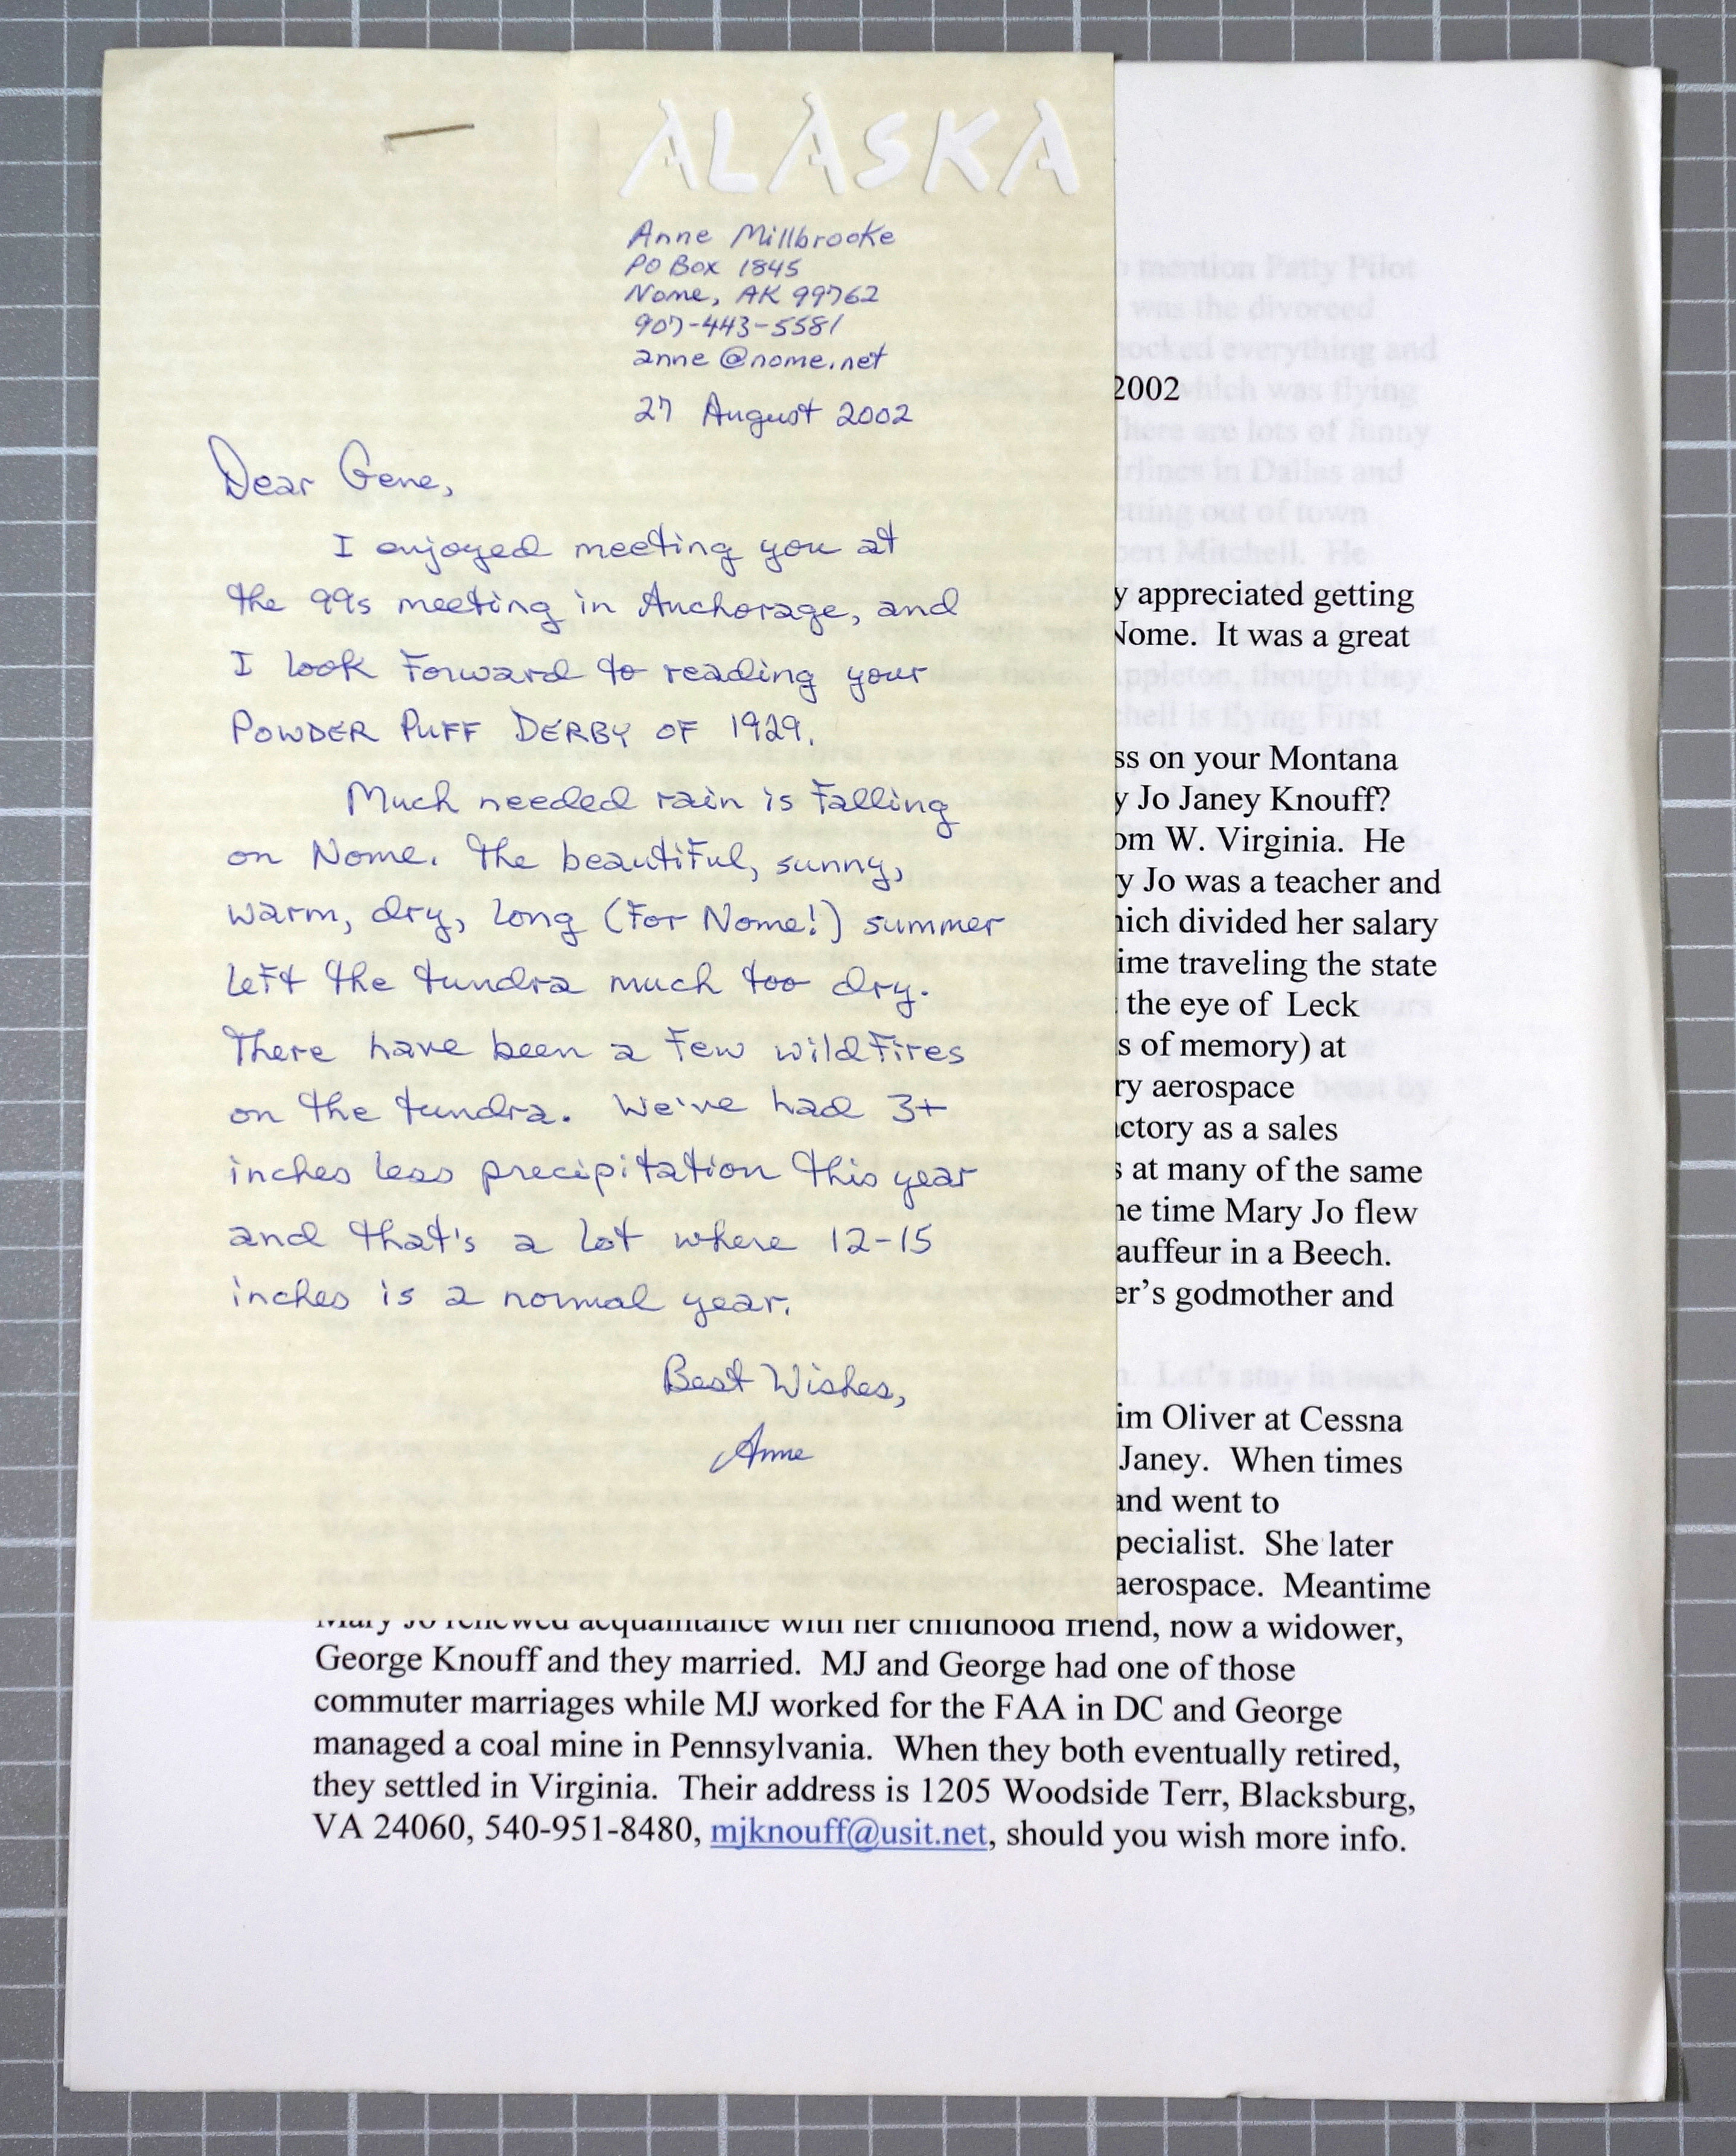 ALASKA
Anne Millbrooke
PO Box 1845
Nome, AK 99762
907-443-5581
anne@nome.net
27 August 2002
Dear Gene,
I enjoyed meeting you at
the 99s meeting in Anchorage, and
I look forward to reading your
POWDER PUFF DERBY OF 1929.
Much needed rain is falling
on Nome. The beautiful, sunny,
warm, dry, long (for Nome!) summer
left the tundra much too dry.
There have been a few wildfires
on the tundra. We've had 3+
inches less precipitation this year
and that's a lot where 12-15
inches is a normal year.
Best Wishes,
Anne
2002
appreciated getting
Nome. It was a great
on your Montana
Jo Janey Knouff?
W. Virginia. He
Jo was a teacher and
divided her salary
traveling the state
the eye of Leck
of memory) at
aerospace
as a sales
at many of the same
time Mary Jo flew
in a Beech.
godmother and
Oliver at Cessna
Janey. When times
and went to
She later
aerospace. Meantime
Mary Jo renewed acquaintance with her childhood friend, now a widower,
George Knouff and they married. MJ and George had one of those
commuter marriages while MJ worked for the FAA in DC and George
managed a coal mine in Pennsylvania. When they both eventually retired,
they settled in Virginia. Their address is 1205 Woodside Terr, Blacksburg,
VA 24060, 540-951-8480, mjknouff@usit.net, should you wish more info.